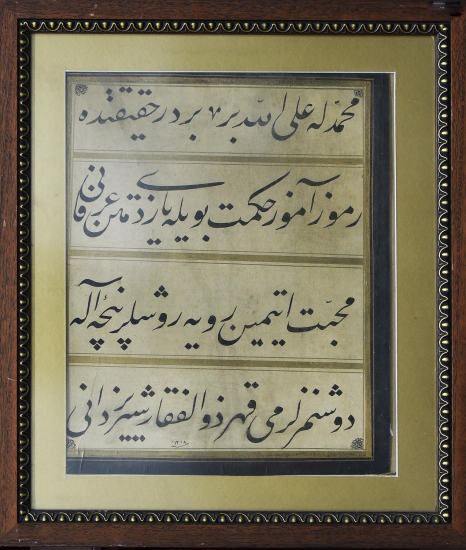 محمّد له علی الله بر ٢ بردر حقیقتده
رموز آموز حکمت بویله یازدی متن عرفانی
محبّت ایتمین رویه روشلر پنچهٔ آله
دوشنمزلرمی قهر ذوالفقار شیر یزدانی